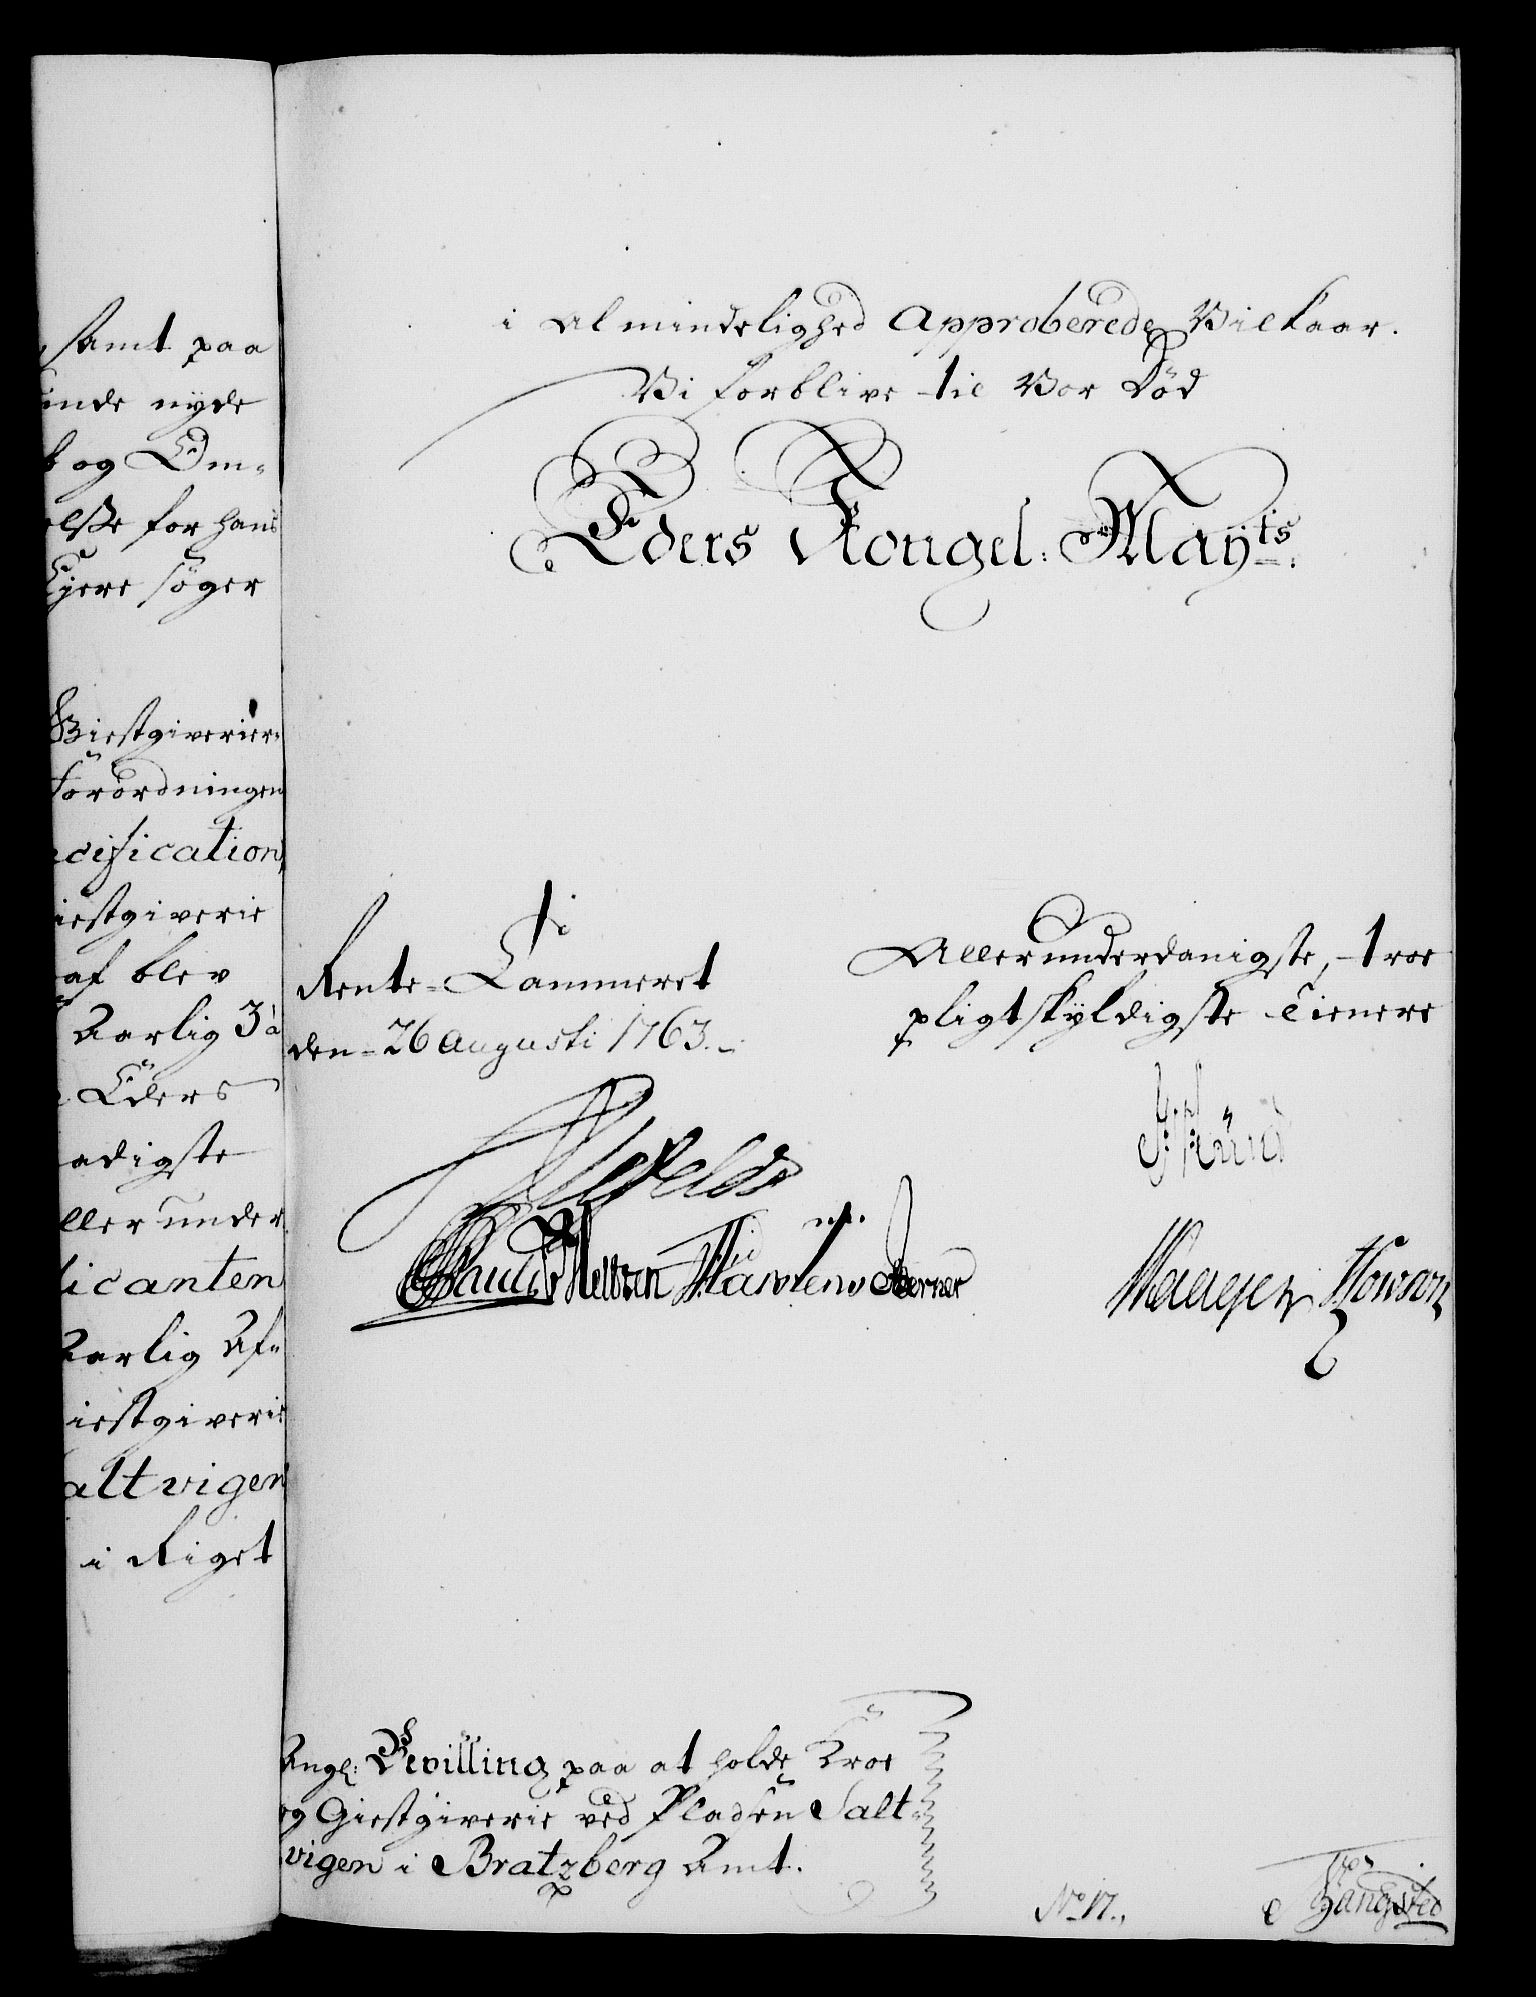 samt paa
inde nyde
og Om-
else for hans
Ejere søger
Giestgiverier-
Forordningen
cification
iestgiverie
af blev
Aarlig 3 a
Eders
adigste
ller under-
licanten
Aarlig Af-
iestgiverie
altvigen
i Riget
i Almindelighed Approberede Vilkaar.
Vi forblive til Vor Død
Eders Kongel: Mayts:
Rente-Cammeret
den 26 Augusti 1763.
Allerunderdanigste, troe
pligtskyldigste Tienere
Ang: Bevilling paa at holde Kroe
og Giestgiverie ved Pladsen Salt-
vigen i Bratzberg Amt.
No 17.